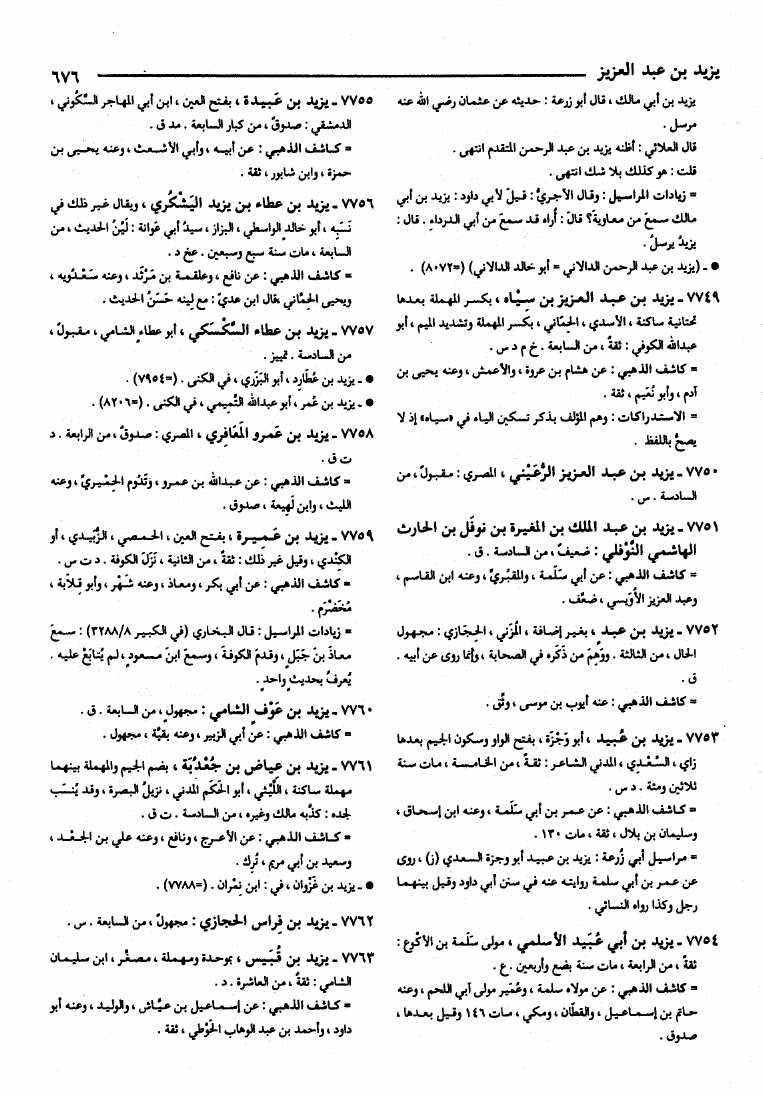 يزيد بن عبد العزيز
٦٧٦
يزيد بن أبي مالك ، قال أبو زرعة : حديثه عن عثمان رضي الله عنه
مرسل .
قال العلائي : أظنه يزيد بن عبد الرحمن المتقدم انتهى .
قلت : هو كذلك بلا شك انتهى .
= زيادات المراسيل : وقال الآجريُّ : قيلَ لأبي داود : يزيد بن أبي
مالك سمعَ من معاويةَ؟ قالَ : أُراه قد سمعَ من أبي الدرداءِ . قال :
يزيدُ يرسلُ .
● ـ (يزيد بن عبد الرحمن الدالاني = أبو خالد الدالاني) (=٨٠٧٢) .
٧٧٤٩ ـ يزيد بن عبد العزيز بن سِيَاه ، بكسر المهملة بعدها
تحتانية ساكنة ، الأسدي ، الحِمّاني ، بكسر المهملة وتشديد الميم ، أبو
عبدالله الكوفي : ثقةٌ ، من السابعة . خ م د س .
= كاشف الذهبي : عن هشام بن عروة ، والأعمش ، وعنه يحيى بن
آدم ، وأبو نُعَيم ، ثقة .
= الاستدراكات : وهم المؤلف بذكر تسكين الياء في «سياه» إذ لا
يصحُّ باللفظ .
٧٧٥٠ ـ يزيد بن عبد العزيز الرُّعَيْني ، المصري : مقبولٌ ، من
السادسة . س .
٧٧٥١ ـ يزيد بن عبد الملك بن المغيرة بن نوفَل بن الحارث
الهاشمي النَّوْفلي : ضعيفٌ ، من السادسة . ق .
= كاشف الذهبي : عن أبي سَلَمة ، والمقبُريِّ ، وعنه ابن القاسم ،
وعبد العزيز الأُوَيسي ، ضعِّف .
٧٧٥٢ ـ يزيد بن عبدٍ ، بغير إضافة ، المُزَني ، الحِجَازي : مجهول
الحال ، من الثالثة . ووَهِمَ من ذكَره في الصحابة ، وإنما روى عن أبيه .
ق .
= كاشف الذهبي : عنه أيوب بن موسى ، وثِّق .
٧٧٥٣ ـ يزيد بن عُبيد ، أبو وَجْزَة ، بفتح الواو وسكون الجيم بعدها
زاي ، السَّعْدي ، المدني الشاعر : ثقةٌ ، من الخامسة ، مات سنة
ثلاثين ومئة . د س .
= كاشف الذهبي : عن عمر بن أبي سلَمة ، وعنه ابن إسحاق ،
وسليمان بن بلال ، ثقة ، مات ١٣٠ .
= مراسيل أبي زُرعة : يزيد بن عبيد أبو وجزة السعدي (ز) ، روى
عن عمر بن أبي سلمة روايته عنه في سنن أبي داود وقيل بينهما
رجل وكذا رواه النسائي .
٧٧٥٤ ـ يزيد بن أبي عُبَيد الأسلمي ، مولى سَلَمة بن الأكْوع :
ثقةٌ ، من الرابعة ، مات سنة بضع وأربعين . ع .
= كاشف الذهبي : عن مولاه سلمة ، وعُمَير مولى آبي اللحم ، وعنه
حاتم بن إسماعيل ، والقطّان ، ومكي ، مات ١٤٦ وقيل بعدها ،
صدوق .
٧٧٥٥ ـ يزيد بن عَبِيدة ، بفتح العين ، ابن أبي المهاجر السَّكُوني ،
الدمشقي : صدوقٌ ، من كبار السابعة . مد ق .
= كاشف الذهبي : عن أبيه ، وأبي الأشعث ، وعنه يحيى بن
حمزة ، وابن شابور ، ثقة .
٧٧٥٦ ـ يزيد بن عطاء بن يزيد اليَشْكُري ، ويقال غير ذلك في
نَسَبِه ، أبو خالدٍ الواسطي ، البزاز ، سيدُ أبي عَوانة : لَيِّنُ الحديث ، من
السابعة ، مات سنة سبع وسبعين . عخ د .
= كاشف الذهبي : عن نافع ، وعلقمة بن مَرْثَد ، وعنه سَعْدُويه ،
ويحيى الحِمّاني ، قال ابن عديّ : مع لِينه حَسَنُ الحديث .
٧٧٥٧ ـ يزيد بن عطاء السَّكْسَكي ، أبو عطاءٍ الشامي ، مقبولٌ ،
من السادسة . تمييز .
● ـ يزيد بن عُطارد ، أبو البَزَري ، في الكنى . (=٧٩٥٤) .
● ـ يزيد بن عُمر ، أبو عبدالله التَّمِيمي ، في الكنى . (=٨٢٠٦) .
٧٧٥٨ ـ يزيد بن عَمرو المَعَافِري ، المصري : صدوقٌ ، من الرابعة . د
ت ق .
= كاشف الذهبي : عن عبدالله بن عمرو ، وتَدُوم الحِمْيريِّ ، وعنه
الليث ، وابن لَهيعة ، صدوق .
٧٧٥٩ ـ يزيد بن عَمِيرة ، بفتح العين ، الحمصي ، الزُّبيدي ، أو
الكِندي ، وقيل غير ذلك : ثقةٌ ، من الثانية ، نَزَلَ الكوفة . د ت س .
= كاشف الذهبي : عن أبي بكر ، ومعاذ ، وعنه شَهْر ، وأبو قِلابة ،
مُخَضْرَم .
= زيادات المراسيل : قال البخاري (في الكبير ٣٢٨٨/٨) : سمعَ
معاذَ بنَ جَبَلٍ ، وقدمَ الكوفةَ ، وسمعَ ابنَ مسعودٍ ، لم يُتابَعْ عليه .
يُعرفُ بحديثٍ واحدٍ .
٧٧٦٠ ـ يزيد بن عَوْفٍ الشامي : مجهولٌ ، من السابعة . ق .
= كاشف الذهبي : عن أبي الزبير ، وعنه بقيَّة ، مجهول .
٧٧٦١ ـ يزيد بن عياض بن جُعْدُبَة ، بضم الجيم والمهملة بينهما
مهملة ساكنة ، اللَّيْثي ، أبو الحكَم المدني ، نزيلُ البصرة ، وقد يُنْسَب
لجده : كذَّبه مالك وغيره ، من السادسة . ت ق .
= كاشف الذهبي : عن الأعرج ، ونافع ، وعنه علي بن الجَعْد ،
وسعيد بن أبي مريم ، تُرِك .
● ـ يزيد بن غَزْوان ، في : ابن نِمْران . (=٧٧٨٨) .
٧٧٦٢ ـ يزيد بن فراس الحجازي : مجهولٌ ، من السابعة . س .
٧٧٦٣ ـ يزيد بن قُبَيس ، بموحدة ومهملة ، مصغَّر ، ابن سليمان
الشامي : ثقةٌ ، من العاشرة . د .
= كاشف الذهبي : عن إسماعيل بن عيَّاش ، والوليد ، وعنه أبو
داود ، وأحمد بن عبد الوهاب الحَوْطي ، ثقة .